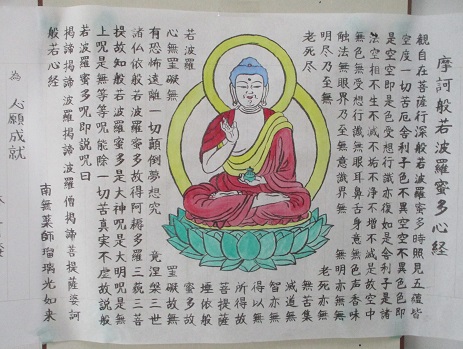 摩訶般若波羅蜜多心経
観自在菩薩行深般若波羅蜜多時照見五蘊皆
空度一切苦厄舎利子色不異空空不異色色即
是空空即是色受想行識亦復如是舎利子是諸
法空相不生不滅不垢不浄不増不減是故空中
無色無受想行識無眼耳鼻舌身意無色声香味
触法無眼界乃至無意識界無 無明亦無無
明尽乃至無 老死亦無
老死尽 無苦集
滅道無
智亦無
得以無
所得故
菩提薩
埵依般
若波羅 蜜多故
心無罣礙無 罣礙故無
有恐怖遠離一切顛倒夢想究 竟涅槃三世
諸仏依般若波羅蜜多故得阿耨多羅三藐三菩
提故知般若波羅蜜多是大神呪是大明呪是無
上呪是無等等呪能除一切苦真実不虚故説般
若波羅蜜多呪即説呪曰
掲諦掲諦 波羅掲諦 波羅僧掲諦 菩提薩婆訶
般若心経
南無薬師瑠璃光如来
為 心願成就